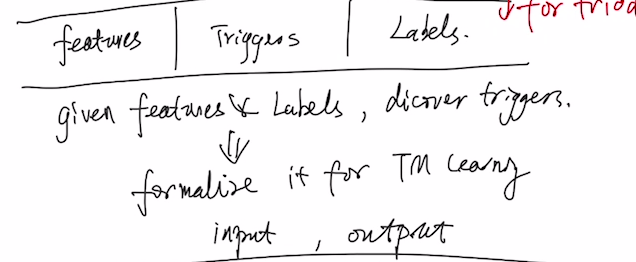 features | Triggers | Labels.
for
given features & Labels, dicover triggers.
⇓
formalize it for TM Learng
input, output